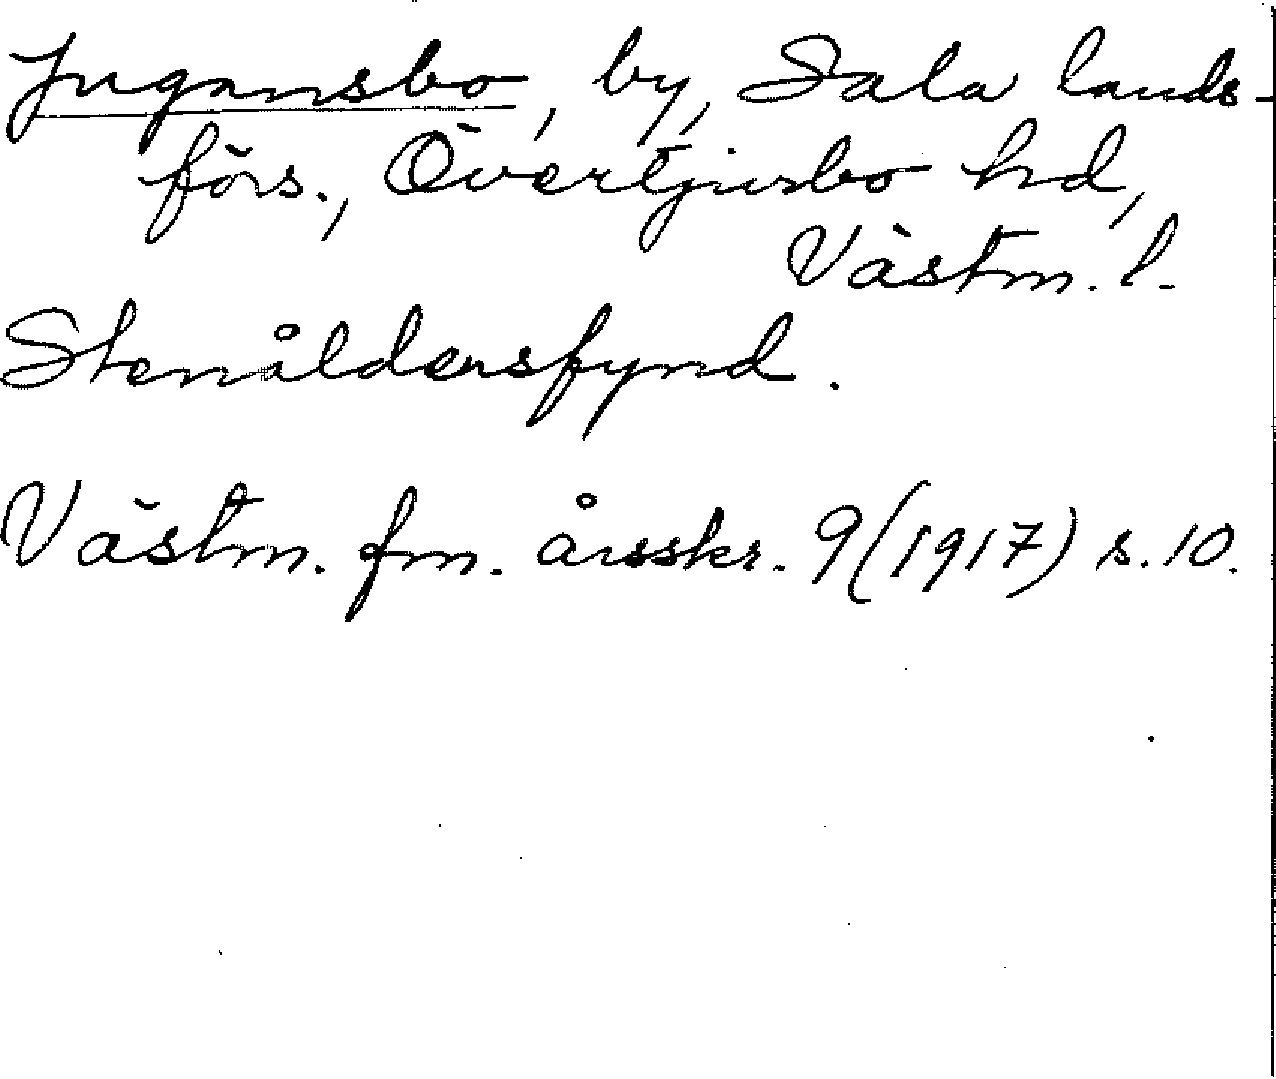 Jugansbo, by, Sala lands-
förs., Övertjursbo hd,
Västm. l.
Stenåldersfynd.
Västm. fm. årsskr. 9 (1917) s. 10.